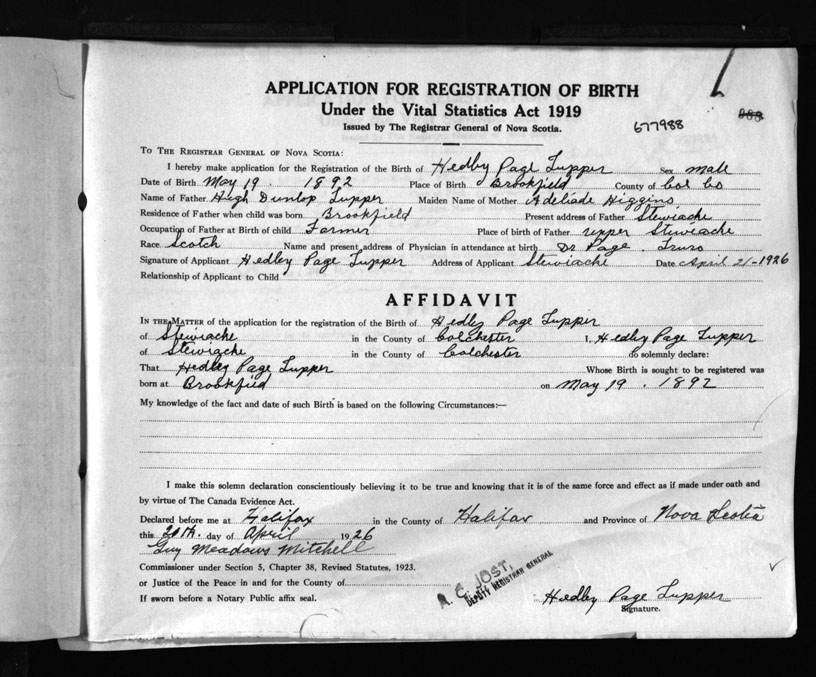 APPLICATION FOR REGISTRATION OF BIRTH
Under the Vital Statistics Act 1919
Issued by The Registrar General of Nova Scotia.
677988
To The Registrar General of Nova Scotia:
I hereby make application for the Registration of the Birth of Hedley Page Tupper Sex male
Date of Birth May 19. 1892 Place of Birth Brookfield County of Col Co
Name of Father Hugh Dunlop Tupper Maiden Name of Mother Adeliade Higgins
Residence of Father when child was born Brookfield Present address of Father Stewiacke
Occupation of Father at Birth of child Farmer Place of birth of Father upper Stewiacke
Race Scotch Name and present address of Physician in attendance at birth Dr Page. Truro
Signature of Applicant Hedley Page Tupper Address of Applicant Stewiacke Date April 21-1926
Relationship of Applicant to Child
AFFIDAVIT
In the Matter of the application for the registration of the Birth of Hedley Page Tupper
of Stewiacke in the County of Colchester I, Hedley Page Tupper
of Stewiacke in the County of Colchester do solemnly declare:
That Hedley Page Tupper Whose Birth is sought to be registered was
born at Brookfield on May 19. 1892
My knowledge of the fact and date of such Birth is based on the following Circumstances:—
I make this solemn declaration conscientiously believing it to be true and knowing that it is of the same force and effect as if made under oath and
by virtue of The Canada Evidence Act.
Declared before me at Halifax in the County of Halifax and Province of Nova Scotia
this day of April 1926
Guy Meadows Mitchell
Commissioner under Section 5, Chapter 38, Revised Statutes, 1923.
or Justice of the Peace in and for the County of
If sworn before a Notary Public affix seal.
A. C. JOST,
DEPUTY REGISTRAR GENERAL
Hedley Page Tupper
Signature.